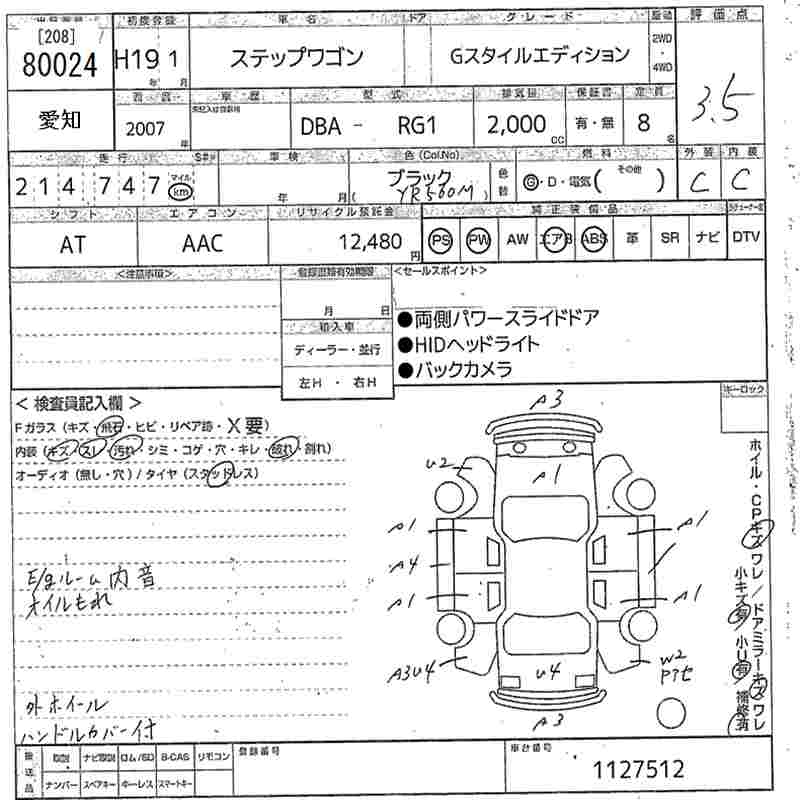 出品番号 初度登録 車名 ドア グレード 駆動 評価点
[208]
80024 H19 1 年 月 ステップワゴン Gスタイルエディション 2WD ・ 4WD 3.5
西暦 車歴 型式 排気量 保証書 定員
愛知 2007 年 DBA - RG1 2,000 CC 有・無 8 名
走行 S# 車検 色(Col.No) 燃料 外装 内装
214747 マイル km 年 月 ブラック ( YR500M ) 色替 G・D・電気( その他 ) C C
シフト エアコン リサイクル預託金 純正装備品
AT AAC 12,480 円 PS PW AW エアB ABS 革 SR ナビ DTV
<注意事項> <セールスポイント>
月 日
輸入車
ディーラー・並行
左H ・ 右H
●両側パワースライドドア
●HIDヘッドライト
●バックカメラ
キーロック
< 検査員記入欄 >
Fガラス(キズ・飛石・ヒビ・リペア跡・X要)
内装(キズ・スレ・汚れ・シミ・コゲ・穴・キレ・破れ・割れ)
オーディオ(無し・穴)/タイヤ(スタッドレス)
E/gルーム内音
オイルもれ
外ホイール
ハンドルカバー付
A3
A1
U2
A1 A1
A4
A1 A1
A3U4 U4 W2
Pアセ
A3
ホイル・CPキズワレ/ドアミラーキズワレ
小キズ有 小U有 補修済
搬送品 取説 ナビ取説 ロム/SD B-CAS リモコン 登録番号 車台番号
ナンバー スペアキー キーレス スマートキー 1127512